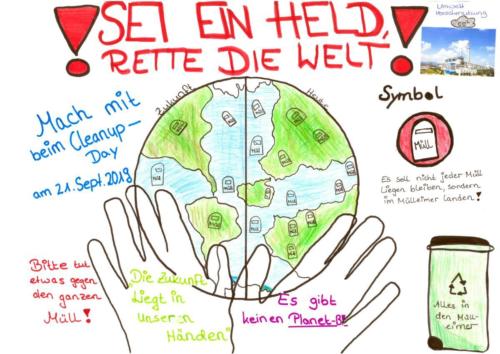 SEI EIN HELD,
RETTE DIE WELT!
Umwelt
Verschmutzung
Zukunft
Heute
Mach mit
beim Cleanup-
Day
am 21. Sept. 2019
Symbol
MÜLL
Es soll nicht jeder Müll
liegen bleiben, sondern
im Mülleimer landen!
Bitte tut
etwas gegen
den ganzen
Müll!
Die Zukunft
liegt in
unseren
Händen"
Es gibt
keinen Planet-B!
Alles in
den Müll-
eimer